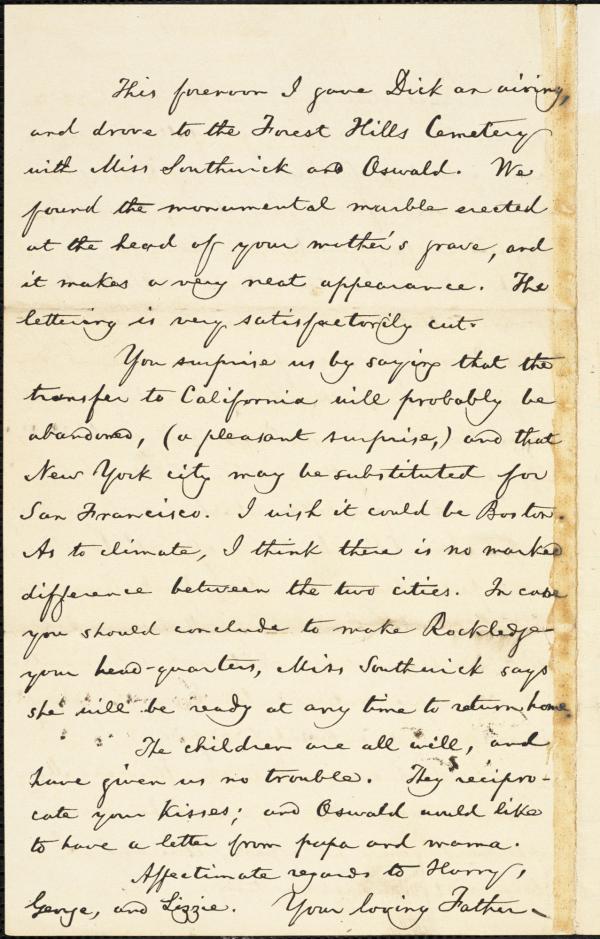 This forenoon I gave Dick an airing,
and drove to the Forest Hills Cemetery
with Miss Southwick and Oswald. We
found the monumental marble erected
at the head of your mother's grave, and
it makes a very neat appearance. The
lettering is very satisfactorily cut.
You surprise us by saying that the
transfer to California will probably be
abandoned, (a pleasant surprise,) and that
New York city may be substituted for
San Francisco. I wish it could be Boston.
As to climate, I think there is no marked
difference between the two cities. In case
you should conclude to make Rockledge
your head-quarters, Miss Southwick says
she will be ready at any time to return home
The children are all well, and
have given us no trouble. They recipro-
cate your kisses; and Oswald would like
to have a letter from papa and mama.
Affectionate regards to Harry,
George, and Lizzie. Your loving Father.